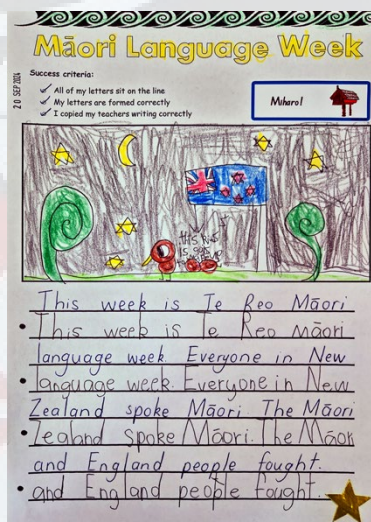 Māori Language Week
20 SEP 2024
Success criteria:
All of my letters sit on the line
My letters are formed correctly
I copied my teachers writing correctly
Miharo!
this
is
This week is Te Reo Māori
This week is Te Reo māori
language week. Everyone in New
language week. Everyone in New
Zealand spoke Māori. The Māori
Zealand spoke Māori. The Māori
and England people fought.
and England people fought.